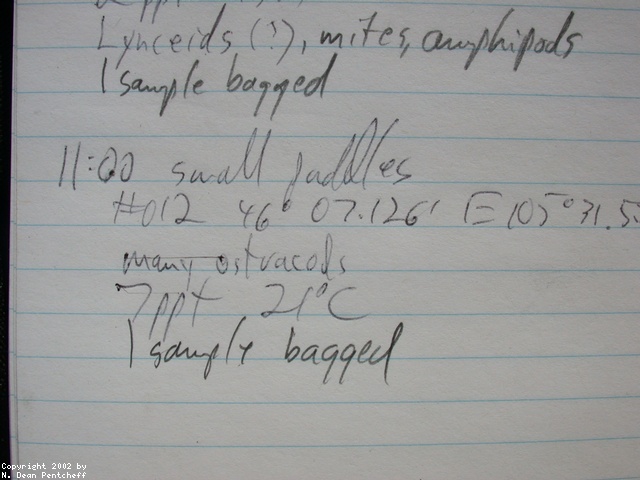 Lynceids (!), mites, amphipods
1 sample bagged
11:00 small puddles
#012 46° 07.126' E 105° 31.5
many ostracods
7ppt 21°C
1 sample bagged
Copyright 2002 by
N. Dean Pentcheff